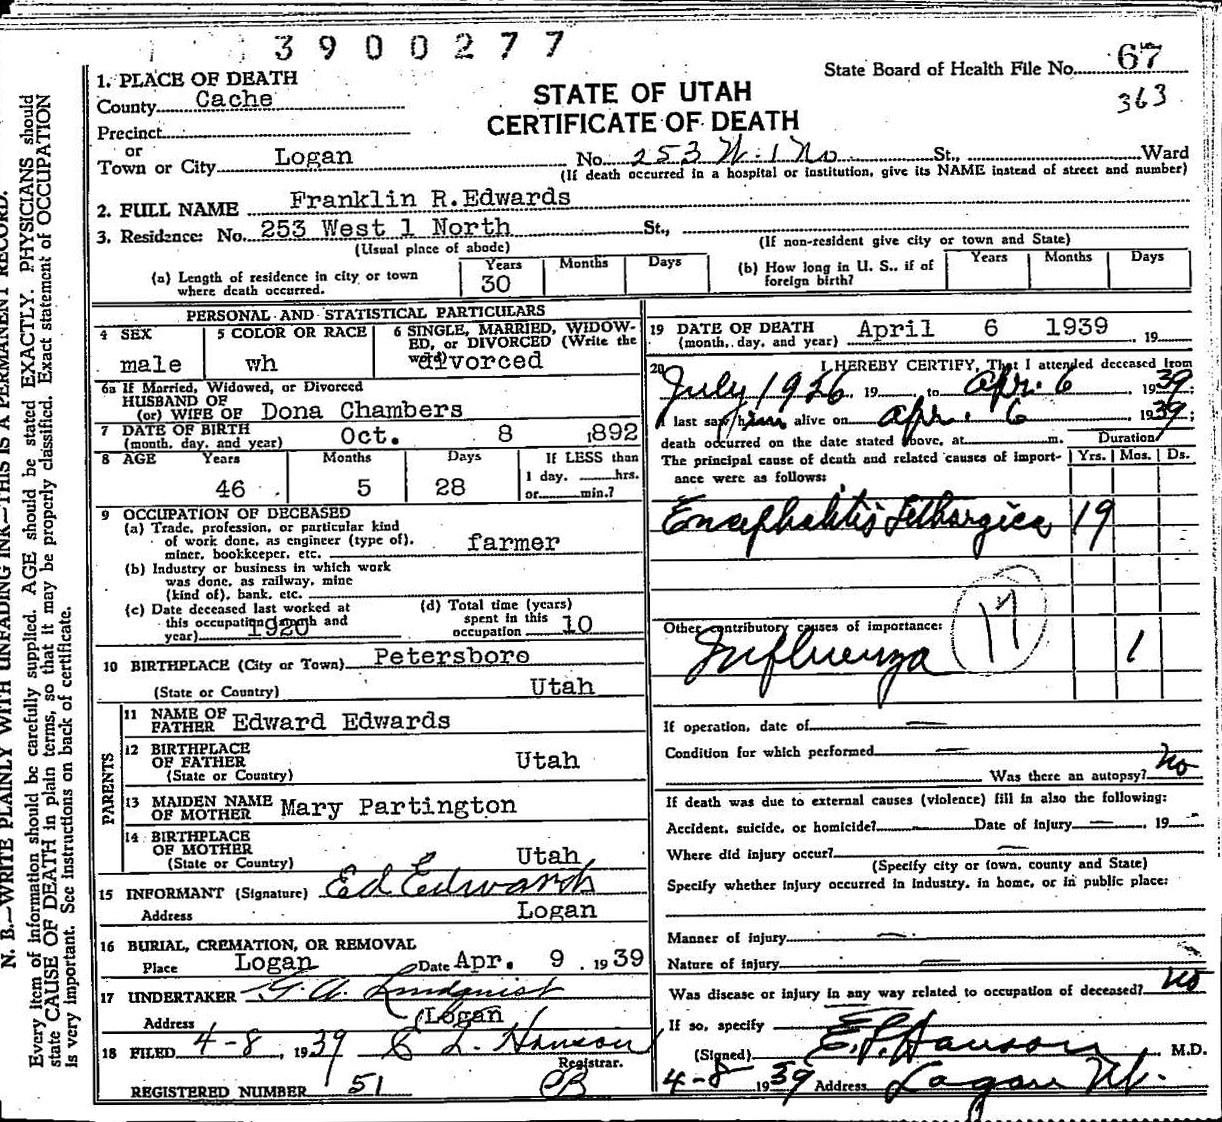 3900277
State Board of Health File No. 67
363
STATE OF UTAH
CERTIFICATE OF DEATH
1. PLACE OF DEATH
County Cache
Precinct
or
Town or City Logan No. 253 W. 1 No St., Ward
(If death occurred in a hospital or institution, give its NAME instead of street and number)
2. FULL NAME Franklin R.Edwards
3. Residence: No. 253 West 1 North St.,
(Usual place of abode) (If non-resident give city or town and State)
(a) Length of residence in city or town where death occurred. Years 30 Months Days
(b) How long in U. S., if of foreign birth? Years Months Days
PERSONAL AND STATISTICAL PARTICULARS
4 SEX male
5 COLOR OR RACE wh
6 SINGLE, MARRIED, WIDOWED, or DIVORCED (Write the word) divorced
6a If Married, Widowed, or Divorced
HUSBAND OF
(or) WIFE OF Dona Chambers
7 DATE OF BIRTH
(month, day, and year) Oct. 8 1892
8 AGE Years 46 Months 5 Days 28
If LESS than
1 day, hrs.
or min.?
9 OCCUPATION OF DECEASED
(a) Trade, profession, or particular kind
of work done, as engineer (type of),
miner, bookkeeper, etc. farmer
(b) Industry or business in which work
was done, as railway, mine
(kind of), bank, etc.
(c) Date deceased last worked at
this occupation (month and
year) 1920
(d) Total time (years)
spent in this
occupation 10
10 BIRTHPLACE (City or Town) Petersboro
(State or Country) Utah
PARENTS
11 NAME OF
FATHER Edward Edwards
12 BIRTHPLACE
OF FATHER
(State or Country) Utah
13 MAIDEN NAME
OF MOTHER Mary Partington
14 BIRTHPLACE
OF MOTHER
(State or Country) Utah
15 INFORMANT (Signature) Ed Edwards
Address Logan
16 BURIAL, CREMATION, OR REMOVAL
Place Logan Date Apr. 9 . 1939
17 UNDERTAKER G. A. Lindquist
Address Logan
18 FILED 4-8, 1939
Hanson
Registrar.
REGISTERED NUMBER 51
19 DATE OF DEATH
(month, day, and year) April 6 1939 , 19
20 I HEREBY CERTIFY, That I attended deceased from
July 1926, 19 to Apr. 6 1939
I last saw him alive on Apr. 6 1939;
death occurred on the date stated above, at m.
Duration
The principal cause of death and related causes of importance were as follows: Yrs. Mos. Ds.
Encephalitis Lethargica 19
17
Other contributory causes of importance:
Influenza 1
If operation, date of —
Condition for which performed —
Was there an autopsy? No
If death was due to external causes (violence) fill in also the following:
Accident, suicide, or homicide? — Date of injury —, 19 -
Where did injury occur? —
(Specify city or town, county and State)
Specify whether injury occurred in industry, in home, or in public place:
Manner of injury —
Nature of injury —
Was disease or injury in any way related to occupation of deceased? No
If so, specify
(Signed) E. L. Hanson M.D.
4-8 1939 Address Logan Ut.
N. B.—WRITE PLAINLY WITH UNFADING INK—THIS IS A PERMANENT RECORD.
Every item of information should be carefully supplied. AGE should be stated EXACTLY. PHYSICIANS should
state CAUSE OF DEATH in plain terms, so that it may be properly classified. Exact statement of OCCUPATION
is very important. See instructions on back of certificate.